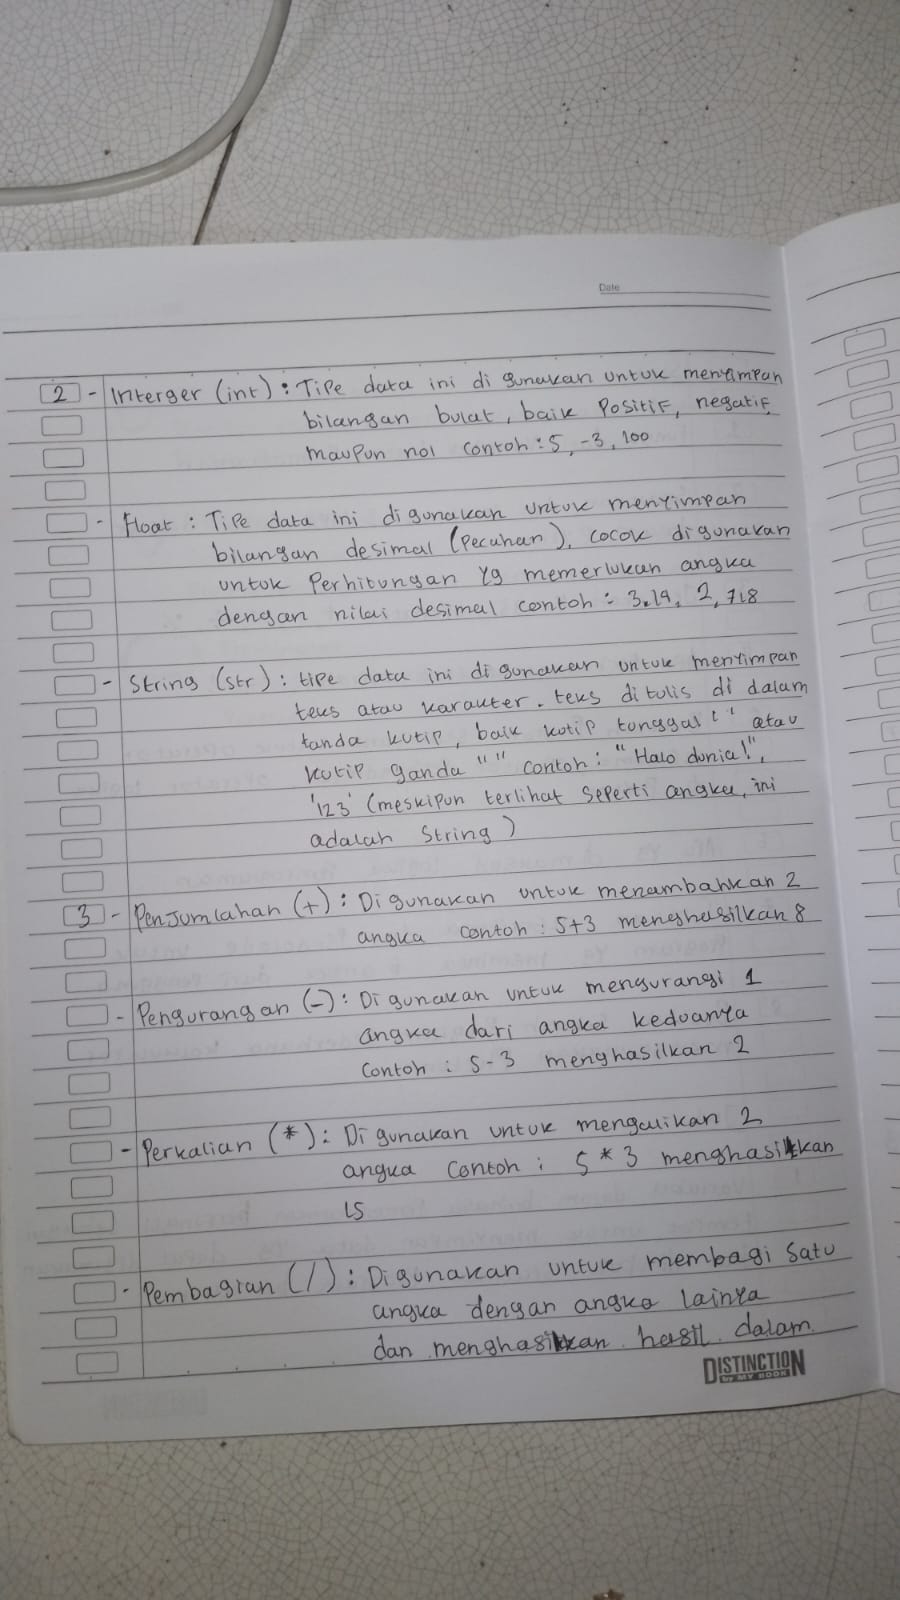 Date
2 - Interger (int) : Tipe data ini di gunakan untuk menyimpan
bilangan bulat, baik Positif, negatif,
maupun nol contoh : 5, -3, 100
- Float : Tipe data ini di gunakan untuk menyimpan
bilangan desimal (Pecahan), cocok di gunakan
untuk Perhitungan yg memerlukan angka
dengan nilai desimal contoh : 3.14, 2,718
- String (str) : tipe data ini di gunakan untuk menyimpan
teks atau karakter. teks di tulis di dalam
tanda kutip, baik kutip tunggal ' ' atau
kutip ganda " " contoh : "Halo dunia!",
'123' (meskipun terlihat seperti angka, ini
adalah String)
3 - Penjumlahan (+) : Di gunakan untuk menambahkan 2
angka contoh : 5+3 menghasilkan 8
- Pengurangan (-) : Di gunakan untuk mengurangi 1
angka dari angka keduanya
Contoh : 5-3 menghasilkan 2
- Perkalian (*) : Di gunakan untuk mengalikan 2
angka Contoh : 5 * 3 menghasilkan
15
- Pembagian (/) : Di gunakan untuk membagi satu
angka dengan angka lainya
dan menghasilkan hasil dalam
DISTINCTION
by MY BOOK